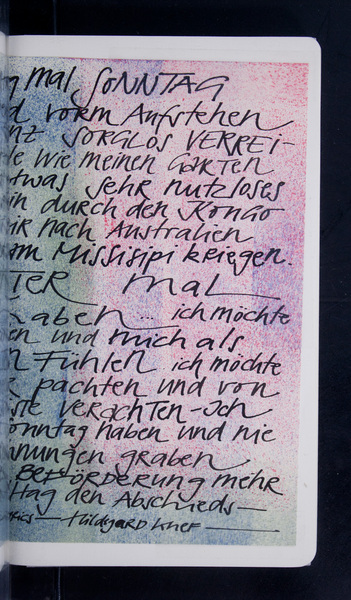 mal, SONNTAG
vorm Aufstehen
SORGLOS VERREI-
Wie meinen GARTEN
etwas sehr nutzloses
durch den KONGO
nach Australien
Missisipi kriegen.
mal
haben ... ich möchte
und mich als
Fühlen ich möchte
pachten und von
verachten - Ich
onntag haben und nie
nungen graben
BEFÖRDERUNG mehr
ttag den Abschieds-
- Hildegard Knef